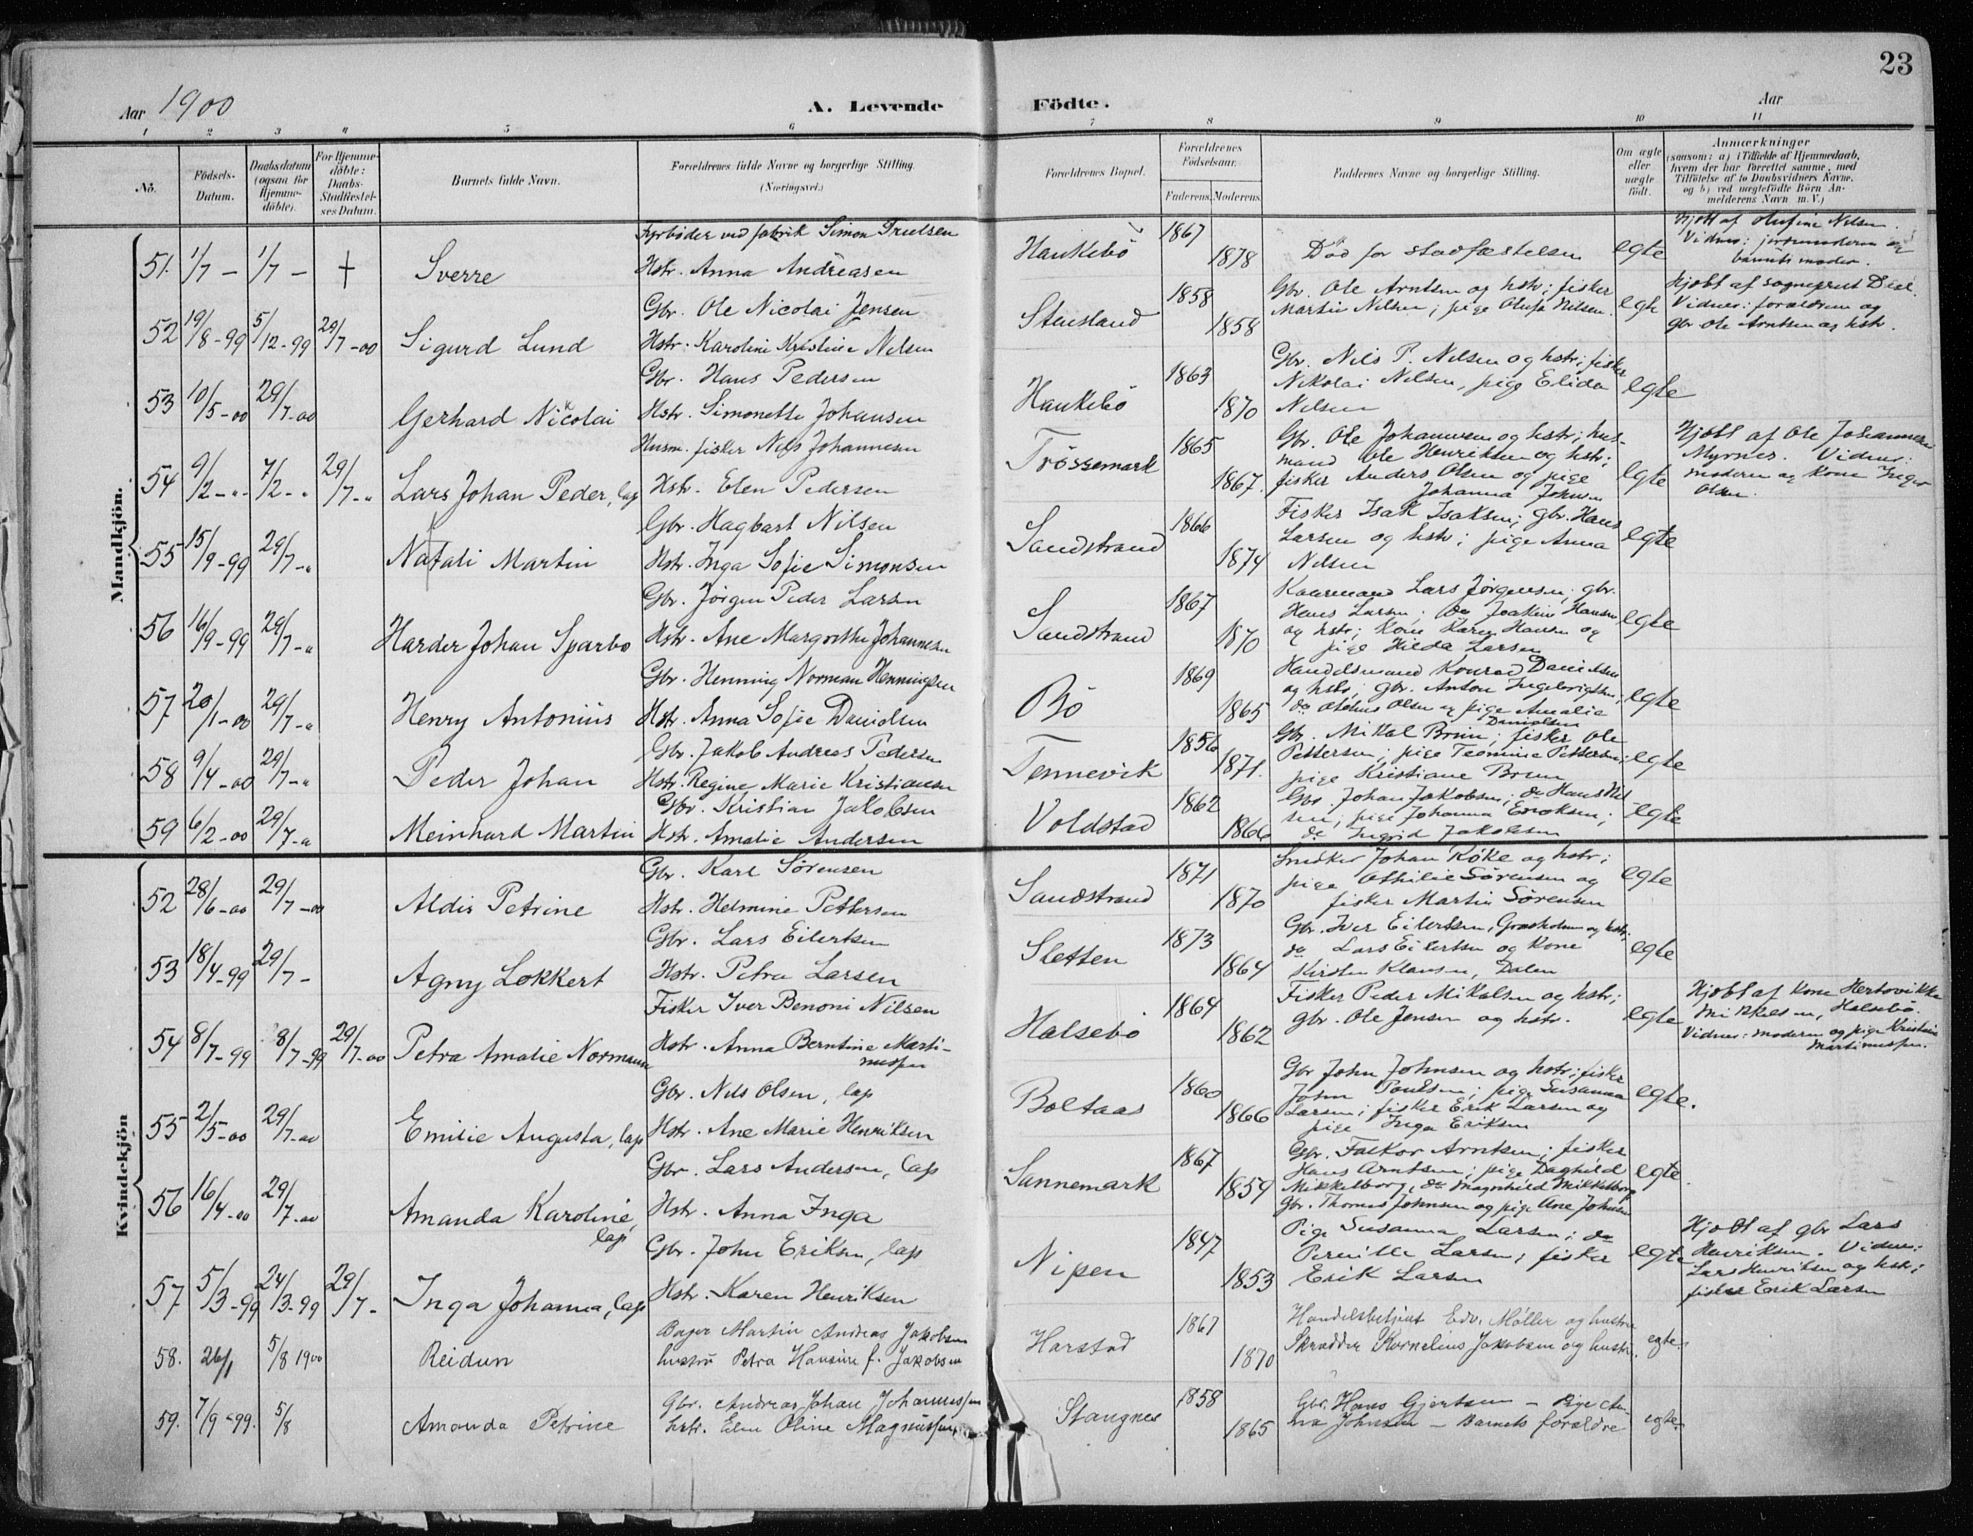 23
Aar 1900 A. Levende Födte. Aar
1 2 3 4 5 6 7 8 9 10 11
No.
Födsels-Datum.
Daabsdatum (ogsaa for Hjemme-döbte).
For Hjemme-döbte: Daabs-Stadfæstel-ses Datum.
Barnets fulde Navn.
Forældrenes fulde Navne og borgerlige Stilling. (Næringsvei.)
Forældrenes Bopæl.
Forældrenes Födselsaar.
Faderens. Moderens.
Faddernes Navne og borgerlige Stilling.
Om ægte eller uægte födt.
Anmærkninger
(saasom: a) i Tilfælde af Hjemmedaab, hvem der har forrettet samme, med Tilföielse af to Daabsvidners Navne, og b) ved uægtefödte Börn Anmelderens Navn m. V.)
Mandkjön.
51. 1/7 – 1/7 – + Sverre
Fyrbøder ved fabrik Simon Truelsen
Hstr. Anna Andreasen
Haukebö 1867 1878
Död før stadfæstelsen
egte
Hjdbt af Olufine Nilsen.
Vidner: jordmoderen og
barnets moder.
52 19/8-99 5/12-99 29/7-00 Sigurd Lund
Gbr. Ole Nicolai Jensen
Hstr. Karoline Kristine Nilsen
Stensland 1858 1858
Gbr. Ole Arntsen og hstr; fisker
Martin Nilsen; pige Olufa Nilsen.
egte
Hjdbt af sogneprest
Vidner: forældrene og
gbr Ole Arntsen og hstr.
53 10/5-00 29/7-00 Gerhard Nicolai
Gbr. Hans Pedersen
Hstr. Simonette Johansen
Haukebö 1863 1870
Gbr. Nils P. Nilsen og hstr; fisker
Nikolai Nilsen, pige Elida
Nilsen
egte
54 9/2-" 7/2-" 29/7-" Lars Johan Peder, lap
Husm. fisker Nils Johannesen
Hstr. Elen Pedersen
Trössemark 1865 1867.
Gbr. Ole Johannesen og hstr; hus-
mand Ole Henriksen og hstr;
fisker Anders Olsen og pige
Johanna Johnsen
egte
Hjdbt af Ole Johannesen
Myrnes. Vidner:
moderen og kone Inger
Olsen.
55 15/9-99 29/7-" Natali Martin
Gbr. Hagbart Nilsen
Hstr. Inga Sofie Simonsen
Sandstrand 1866 1874
Fisker Isak Isaksen; gbr. Hans
Larsen og hstr; pige Anna
Nilsen
egte
56 16/9-99 29/7-" Harder Johan Sparbo
Gbr. Jörgen Peder Larsen
Hstr. Ane Margrethe Johannesen
Sandstrand 1867 1870
Kaarmand Lars Jørgensen, gbr.
Hans Larsen; do Joakim Hansen
og hstr; kone Karen Hansen og
pige Hilda Larsen
egte
57 20/1-00 29/7-" Henry Antonius
Gbr. Henning Norman Henningsen
Hstr. Anna Sofie Danielsen
Bö 1869 1865
Handelsmand Konrad Danielsen
og hstr; gbr. Anton Ingebrigtsen;
do Olsen og pige Amalie
Danielsen
egte
58 9/4-00 29/7-" Peder Johan
Gbr. Jakob Andreas Pedersen
Hstr. Regine Marie Kristiansen
Tennevik 1856 1871.
Gbr. Mikal Brun; fisker Ole
Pettersen; pige Teomine Pettersen;
pige Kristiane Brun
egte
59 6/2-00 29/7-" Meinhard Martin
Gbr. Kristian Jakobsen
Hstr. Amalie Andersen
Voldstad 1862 1866
Gbr. Johan Jakobsen; do Hans Nil-
sen; pige Johanna Enoksen;
do Ingrid Jakobsen
egte
Kvindekjön
52 28/6-00 29/7-00 Aldis Petrine
Gbr. Karl Sörensen
Hstr. Helmine Pettersen
Sandstrand 1871 1870
Snedker Johan Röke og hstr;
pige Othilie Sörensen og
fisker Martin Sörensen
egte
53 18/4-99 29/7- Agny Lokkert
Gbr. Lars Eilertsen
Hstr. Petra Larsen
Sletten 1873 1864
Gbr. Iver Eilertsen, Grasholmen og hstr;
do Lars Eilertsen og kone
Kirsten Klausen, Dalen
egte
54 8/7-99 8/7-99 29/7-00 Petra Amalie Normann
Fisker Iver Benoni Nilsen
Hstr. Anna Berntine Marti-
nussen
Halsebö 1864 1862
Fisker Peder Mikalsen og hstr;
gbr. Ole Jensen og hstr.
egte
Hjdbt af kone Hertovikka
Mikkelsen, Halsebö.
Vidner: moderen og pige Kristine
Martinussen.
55 2/5-00 29/7-00 Emilie Augusta, lap
Gbr. Nils Olsen, lap
Hstr. Ane Marie Henriksen
Boltaas 1860 1866
Gbr John Johnsen og hstr; fisker
John Poulsen; pige Susanna
Larsen; fisker Erik Larsen og
pige Inga Eriksen
egte.
56 16/4-00 29/7-00 Amanda Karoline,
lap
Gbr. Lars Andersen, lap
Hstr. Anna Inga
Sannemark 1867 1859
Gbr. Falkor Arntsen; fisker
Hans Arntsen; pige Daghild
Mikkelborg, do Magnhild Mikkelborg
Gbr. Thomas Johnsen og pige Ane Johnsen
egte.
57 5/3-99 24/3-99 29/7- Inga Johanna, lap
Gbr. John Eriksen, lap
Hstr. Karen Henriksen
Nipen 1847 1853
Pige Susanna Larsen; do
Pernille Larsen; fisker
Erik Larsen
egte
Hjdbt af gbr Lars
Henriksen. Vidner:
Lars Henriksen og hstr;
fisker Erik Larsen
58. 26/1 5/8 1900 Reidun
Bager Martin Andreas Jakobsen
hustru Petra Hansine f. Jakobsen
Harstad 1867 1870
Handelsbetjent Edv. Möller og hustru
Skrædder Kornelius Jakobsen og hustr.
egte.
59. 7/9-99. 5/8 Amanda Petrine
Gbr. Andreas Johan Johannessen
hstr. Elen Oline Magnussen,
Stangnes 1858 1865
Gbr. Hans Gjertsen – Pige An-
na Johnsen – Barnets forældre
egte.